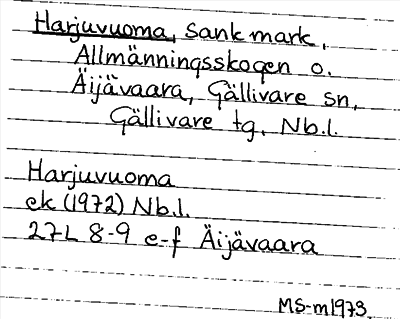 Harjuvuoma, sank mark,
Allmänningsskogen o.
Äijävaara, Gällivare sn,
Gällivare tg, Nb.l.
Harjuvuoma
ek (1972) Nb.l.
27L 8-9 e-f Äijävaara
MS-m1973